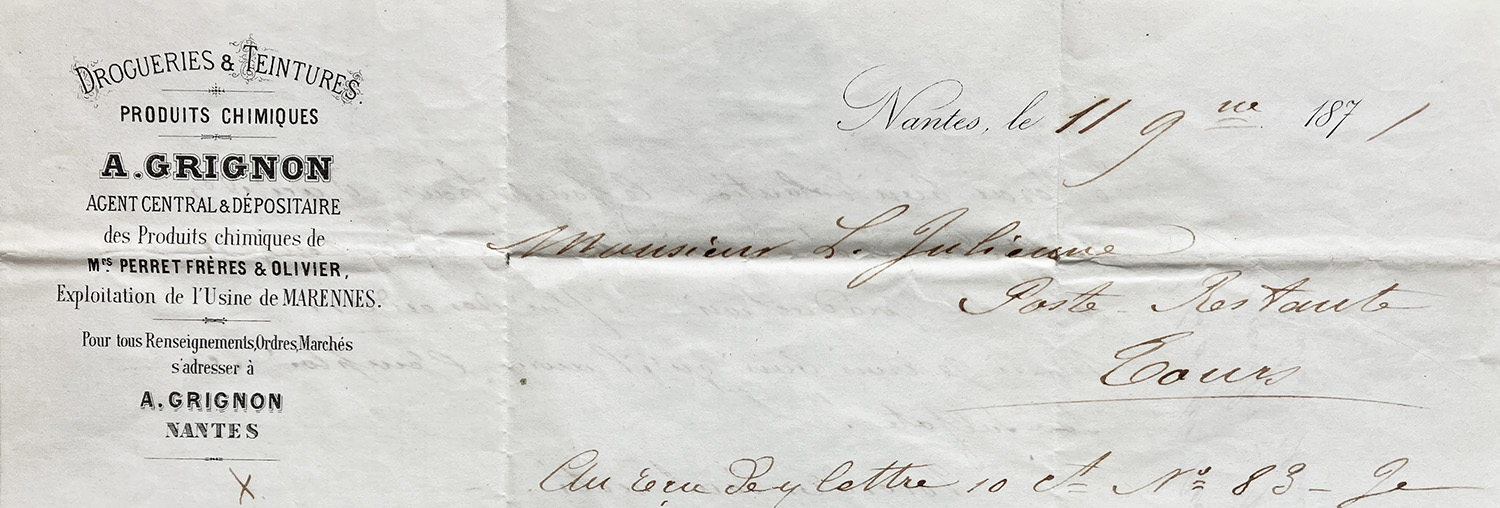 DROGUERIES & TEINTURES.
PRODUITS CHIMIQUES
A. GRIGNON
AGENT CENTRAL & DÉPOSITAIRE
des Produits chimiques de
Mrs. PERRET FRÈRES & OLIVIER,
Exploitation de l'Usine de MARENNES.
Pour tous Renseignements, Ordres, Marchés
s'adresser à
A. GRIGNON
NANTES
X
Nantes, le 11 9bre 1871
Monsieur L. Julienne
Poste-Restante
Tours
lettre 10 Ct No 83 - Je